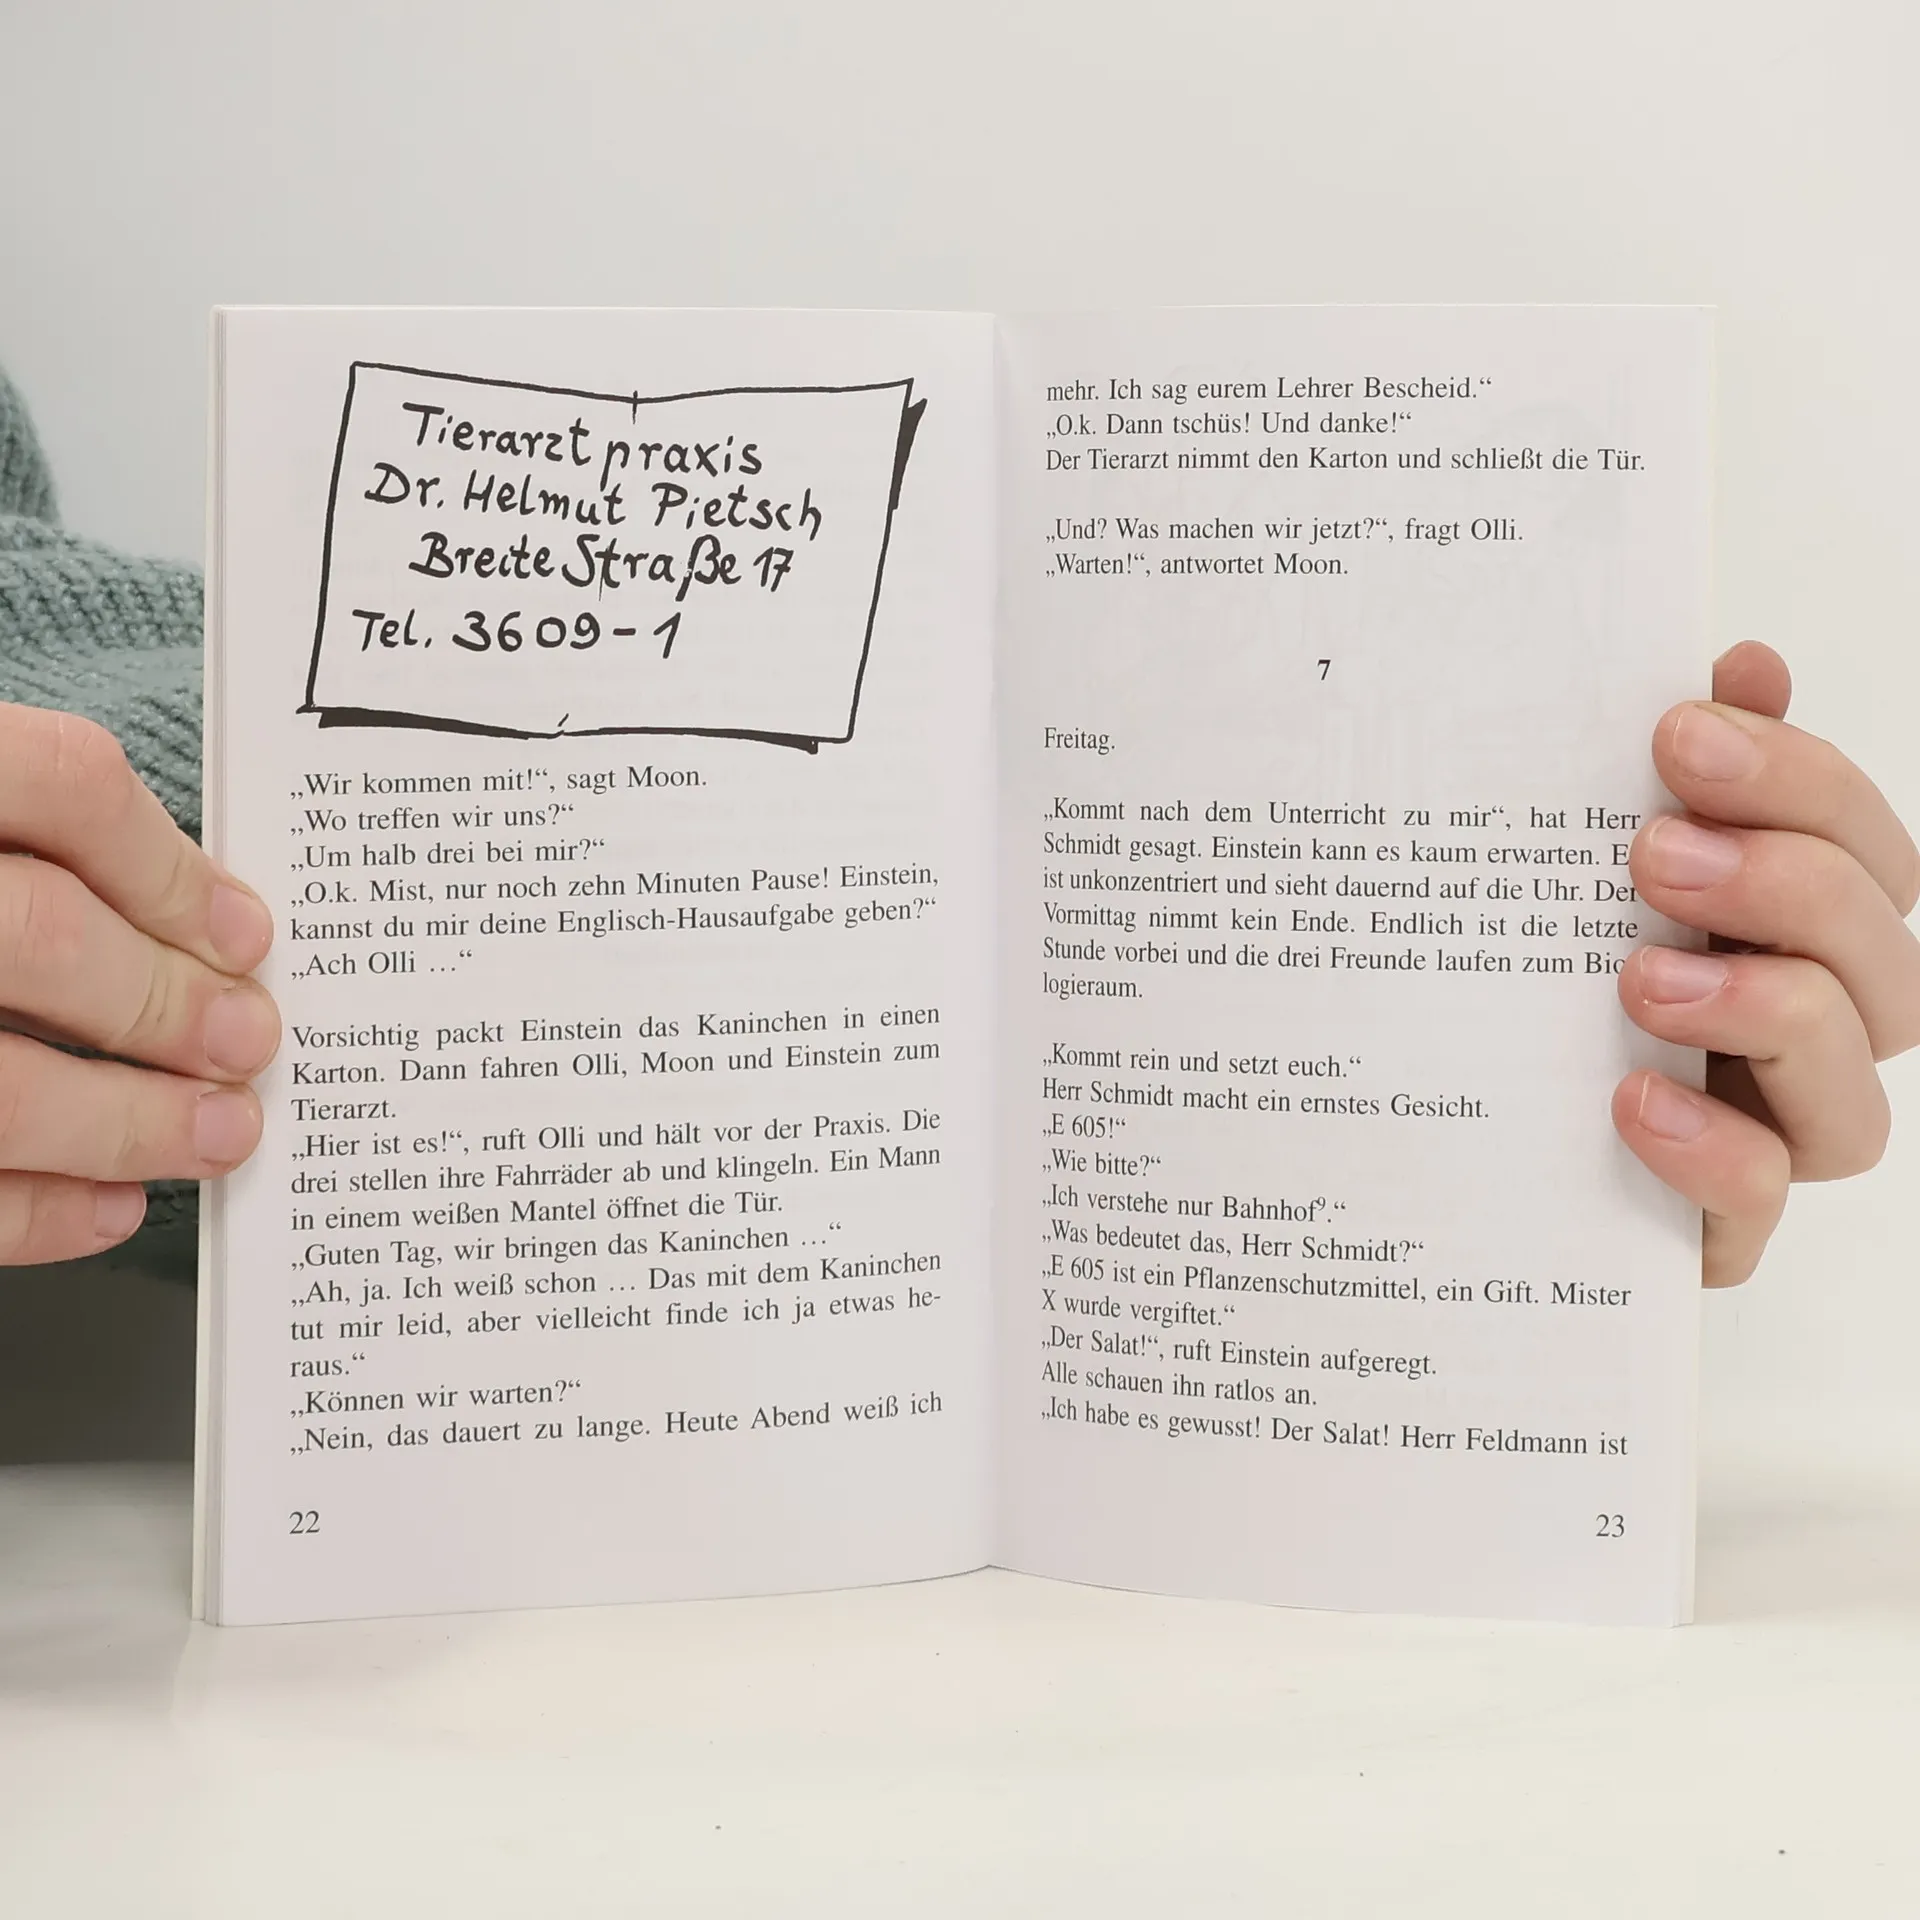 Tierarztpraxis
Dr. Helmut Pietsch
Breite Straße 17
Tel. 3609-1
„Wir kommen mit!“, sagt Moon.
„Wo treffen wir uns?“
„Um halb drei bei mir?“
„O.k. Mist, nur noch zehn Minuten Pause! Einstein,
kannst du mir deine Englisch-Hausaufgabe geben?“
„Ach Olli …“
Vorsichtig packt Einstein das Kaninchen in einen
Karton. Dann fahren Olli, Moon und Einstein zum
Tierarzt.
„Hier ist es!“, ruft Olli und hält vor der Praxis. Die
drei stellen ihre Fahrräder ab und klingeln. Ein Mann
in einem weißen Mantel öffnet die Tür.
„Guten Tag, wir bringen das Kaninchen …“
„Ah, ja. Ich weiß schon … Das mit dem Kaninchen
tut mir leid, aber vielleicht finde ich ja etwas he-
raus.“
„Können wir warten?“
„Nein, das dauert zu lange. Heute Abend weiß ich
22
mehr. Ich sag eurem Lehrer Bescheid.“
„O.k. Dann tschüs! Und danke!“
Der Tierarzt nimmt den Karton und schließt die Tür.
„Und? Was machen wir jetzt?“, fragt Olli.
„Warten!“, antwortet Moon.
7
Freitag.
„Kommt nach dem Unterricht zu mir“, hat Herr
Schmidt gesagt. Einstein kann es kaum erwarten.
ist unkonzentriert und sieht dauernd auf die Uhr. Der
Vormittag nimmt kein Ende. Endlich ist die letzte
Stunde vorbei und die drei Freunde laufen zum Bio
logieraum.
„Kommt rein und setzt euch.“
Herr Schmidt macht ein ernstes Gesicht.
„E 605!“
„Wie bitte?“
„Ich verstehe nur Bahnhof⁹.“
„Was bedeutet das, Herr Schmidt?“
„E 605 ist ein Pflanzenschutzmittel, ein Gift. Mister
X wurde vergiftet.“
„Der Salat!“, ruft Einstein aufgeregt.
Alle schauen ihn ratlos an.
„Ich habe es gewusst! Der Salat! Herr Feldmann ist
23